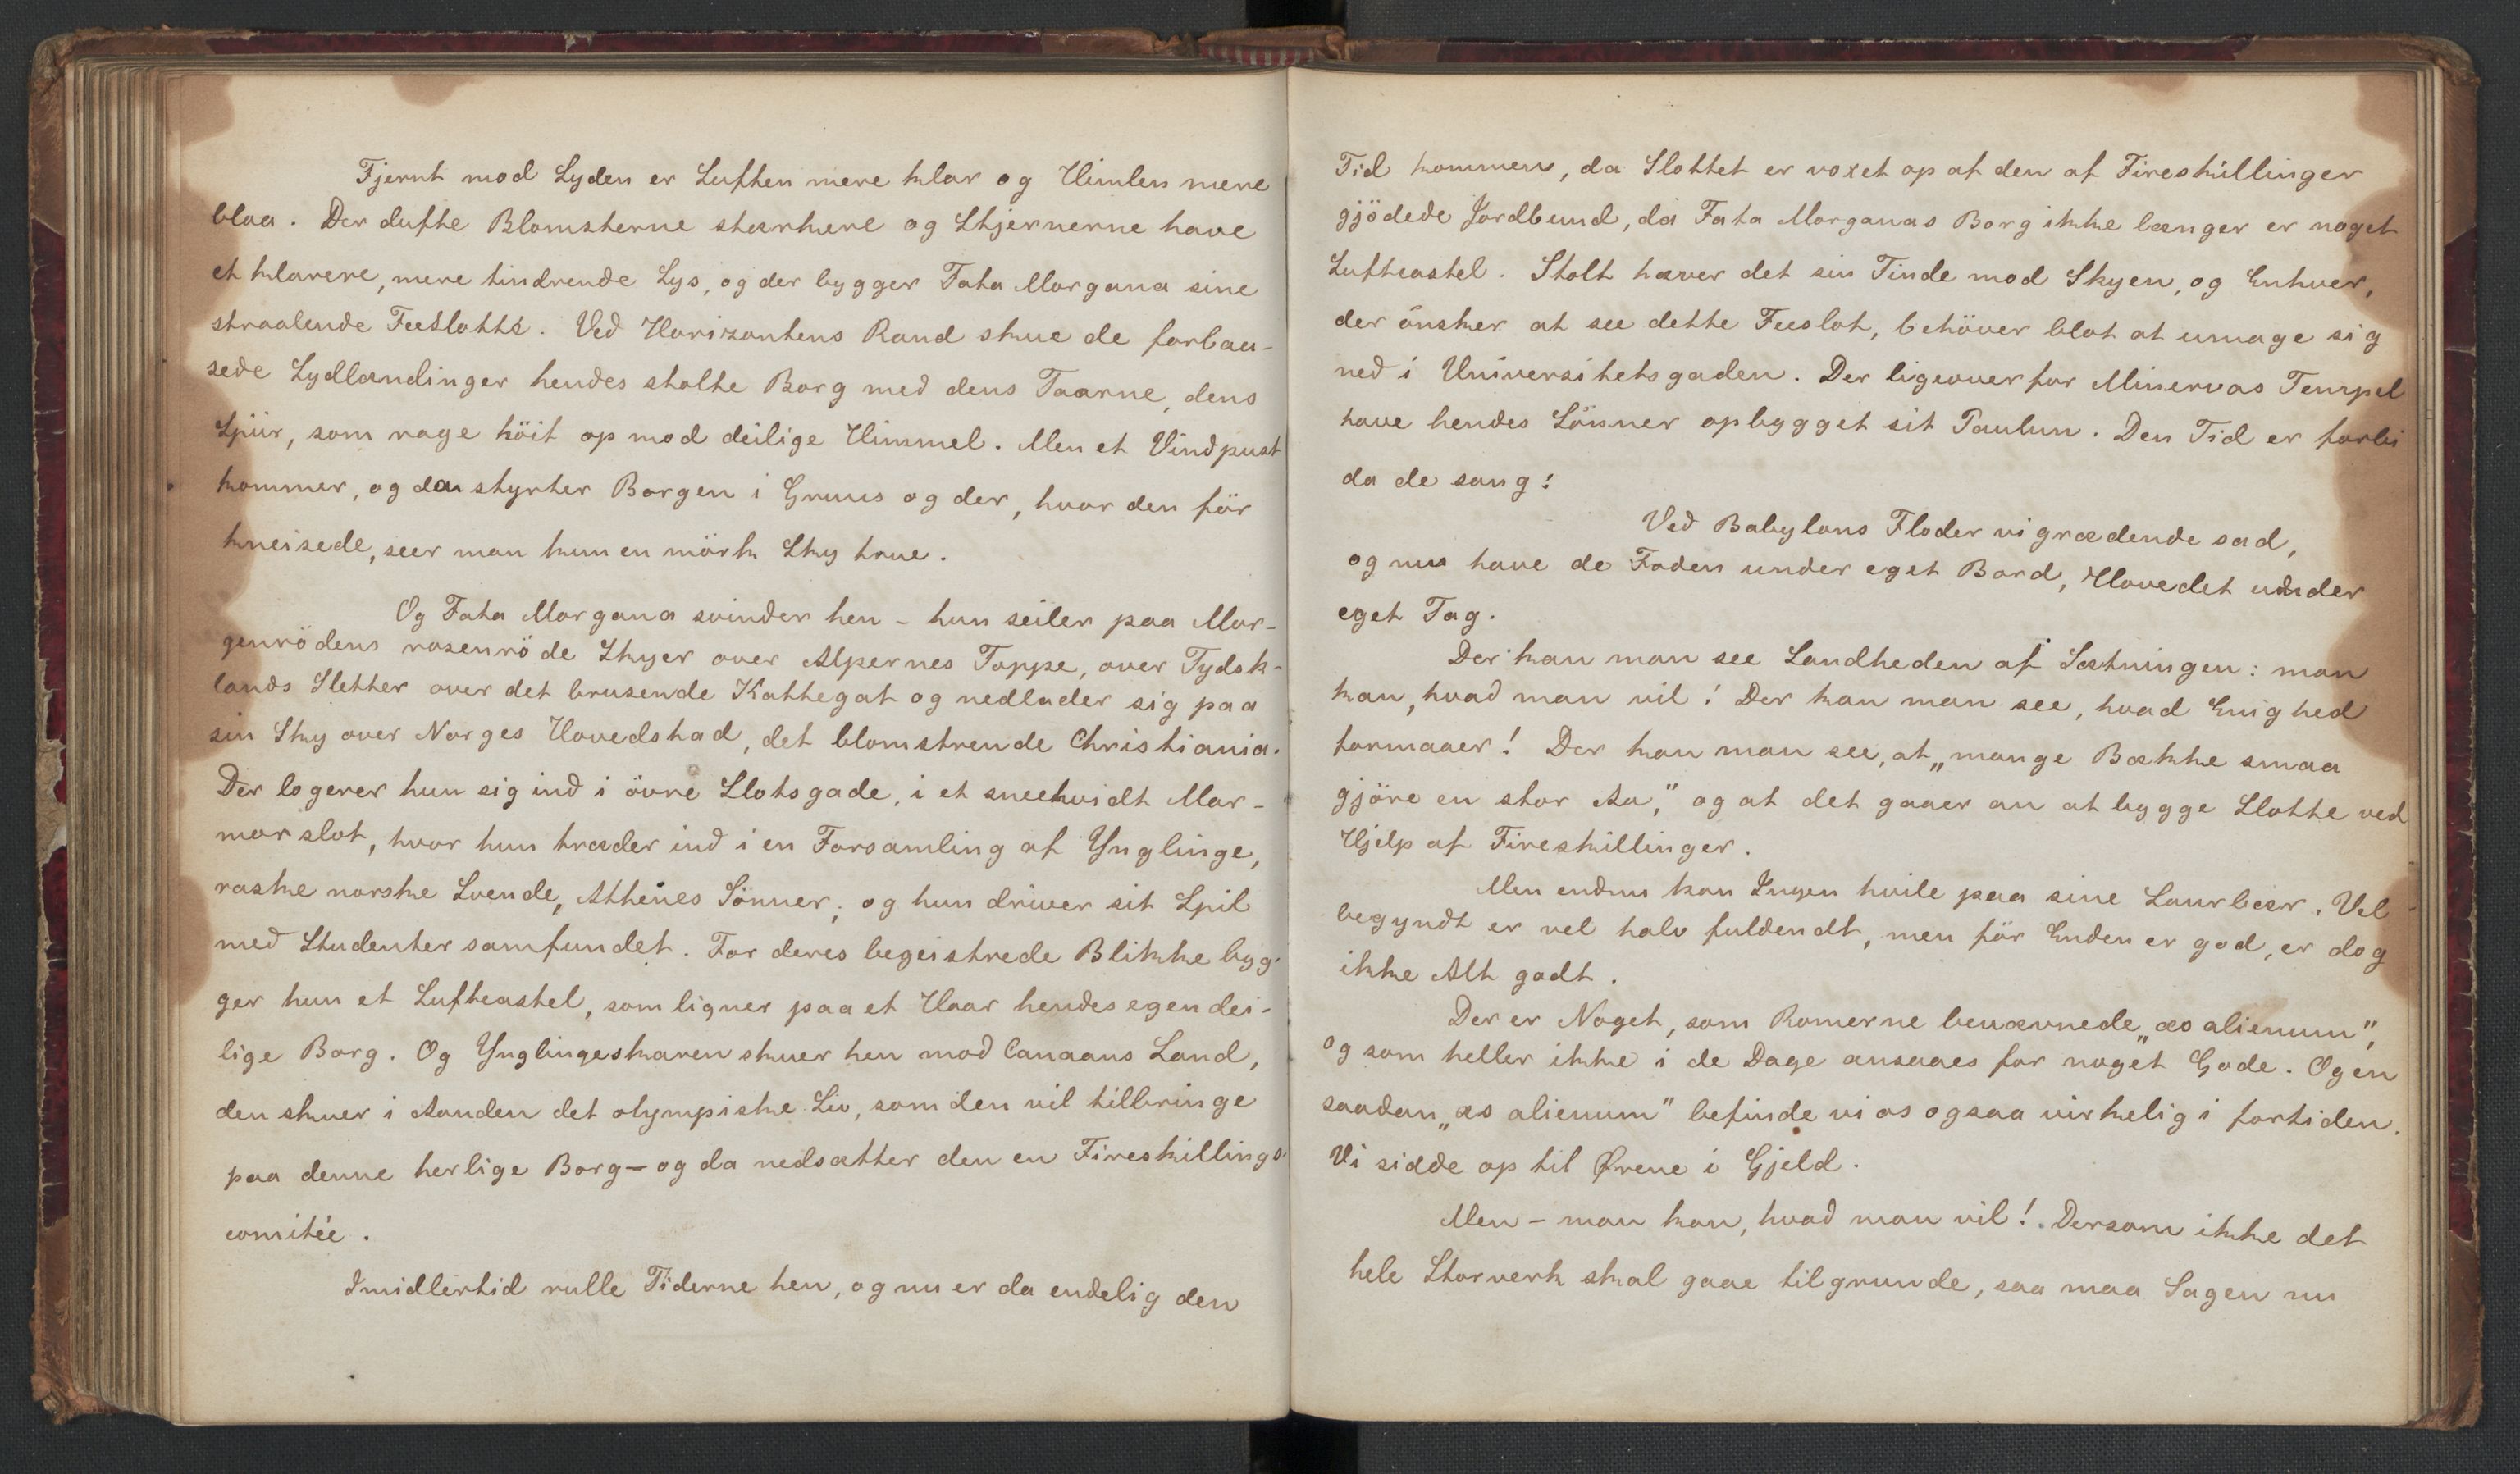 Fjernt mod Syden er Luften mere klar og Himlen mere
blaa. Der dufte Blomsterne stærkere og Stjernerne have
et klarere, mere tindrende Lys, og der bygger Fata Morgana sine
straalende Feeslotte. Ved Horizontens Rand skue de forbau-
sede Sydlændinger hendes stolte Borg med dens Taarne, dens
Spiir, som rage höit op mod deilige Himmel. Men et Vindpust
kommer, og da styrter Borgen i Gruus og der, hvor den för
kneisede, seer man kun en mörk Sky true.
Og Fata Morgana svinder hen - hun seiler paa Mor-
genrödens rosenröde Skyer over Alpernes Toppe, over Tydsk-
lands Sletter over det brusende Kattegat og nedlader sig paa
sin Sky over Norges Hovedstad, det blomstrende Christiania.
Der logerer hun sig ind i övre Slotsgade, i et sneehvidt Mar-
morslot, hvor hun træder ind i en Forsamling af Ynglinge,
raske norske Svende, Athenes Sönner; og hun driver sit Spil
med Studentersamfundet. For deres begeistrede Blikke byg-
ger hun et Luftcastel, som ligner paa et Haar hendes egen dei-
lige Borg. Og Ynglingeskaren skuer hen mod Canaans Land,
den skuer i Aanden det olympiske Liv, som den vil tilbringe
paa denne herlige Borg - og da nedsætter den en Fireskillings-
comitée.
Imidlertid rulle Tiderne hen, og nu er da endelig den
Tid kommen, da Slottet er voxet op af den af Fireskillinger
gjödede Jordbund, da Fata Morganas Borg ikke længer er noget
Luftcastel. Stolt hæver det sin Tinde mod Skyen, og Enhver,
der önsker at see dette Feeslot, behöver blot at umage sig
ned i Universitetsgaden. Der ligeoverfor Minervas Tempel
have hendes Sönner opbygget sit Paulun. Den Tid er forbi
da de sang:
Ved Babylons Floder vi grædende sad,
og nu have de Foden under eget Bord, Hovedet under
eget Tag.
Der kan man see Sandheden af Sætningen: man
kan, hvad man vil! Der kan man see, hvad Enighed
formaaer! Der kan man see, at „mange Bække smaa
gjöre en stor Aa," og at det gaaer an at bygge Slotte ved
Hjelp af Fireskillinger.
Men endnu kan Ingen hvile paa sine Laurbær. Vel
begyndt er vel halv fuldendt, men för Enden er god, er dog
ikke Alt godt.
Der er Noget, som Romerne benævnede „æs alienum",
og som heller ikke i de Dage ansaaes for noget Gode. Og en
saadan „æs alienum" befinde vi os ogsaa virkelig i fortiden.
Vi sidde op til Ørene i Gjeld.
Men - man kan, hvad man vil! Dersom ikke det
hele Storverk skal gaae tilgrunde, saa maa Sagen nu